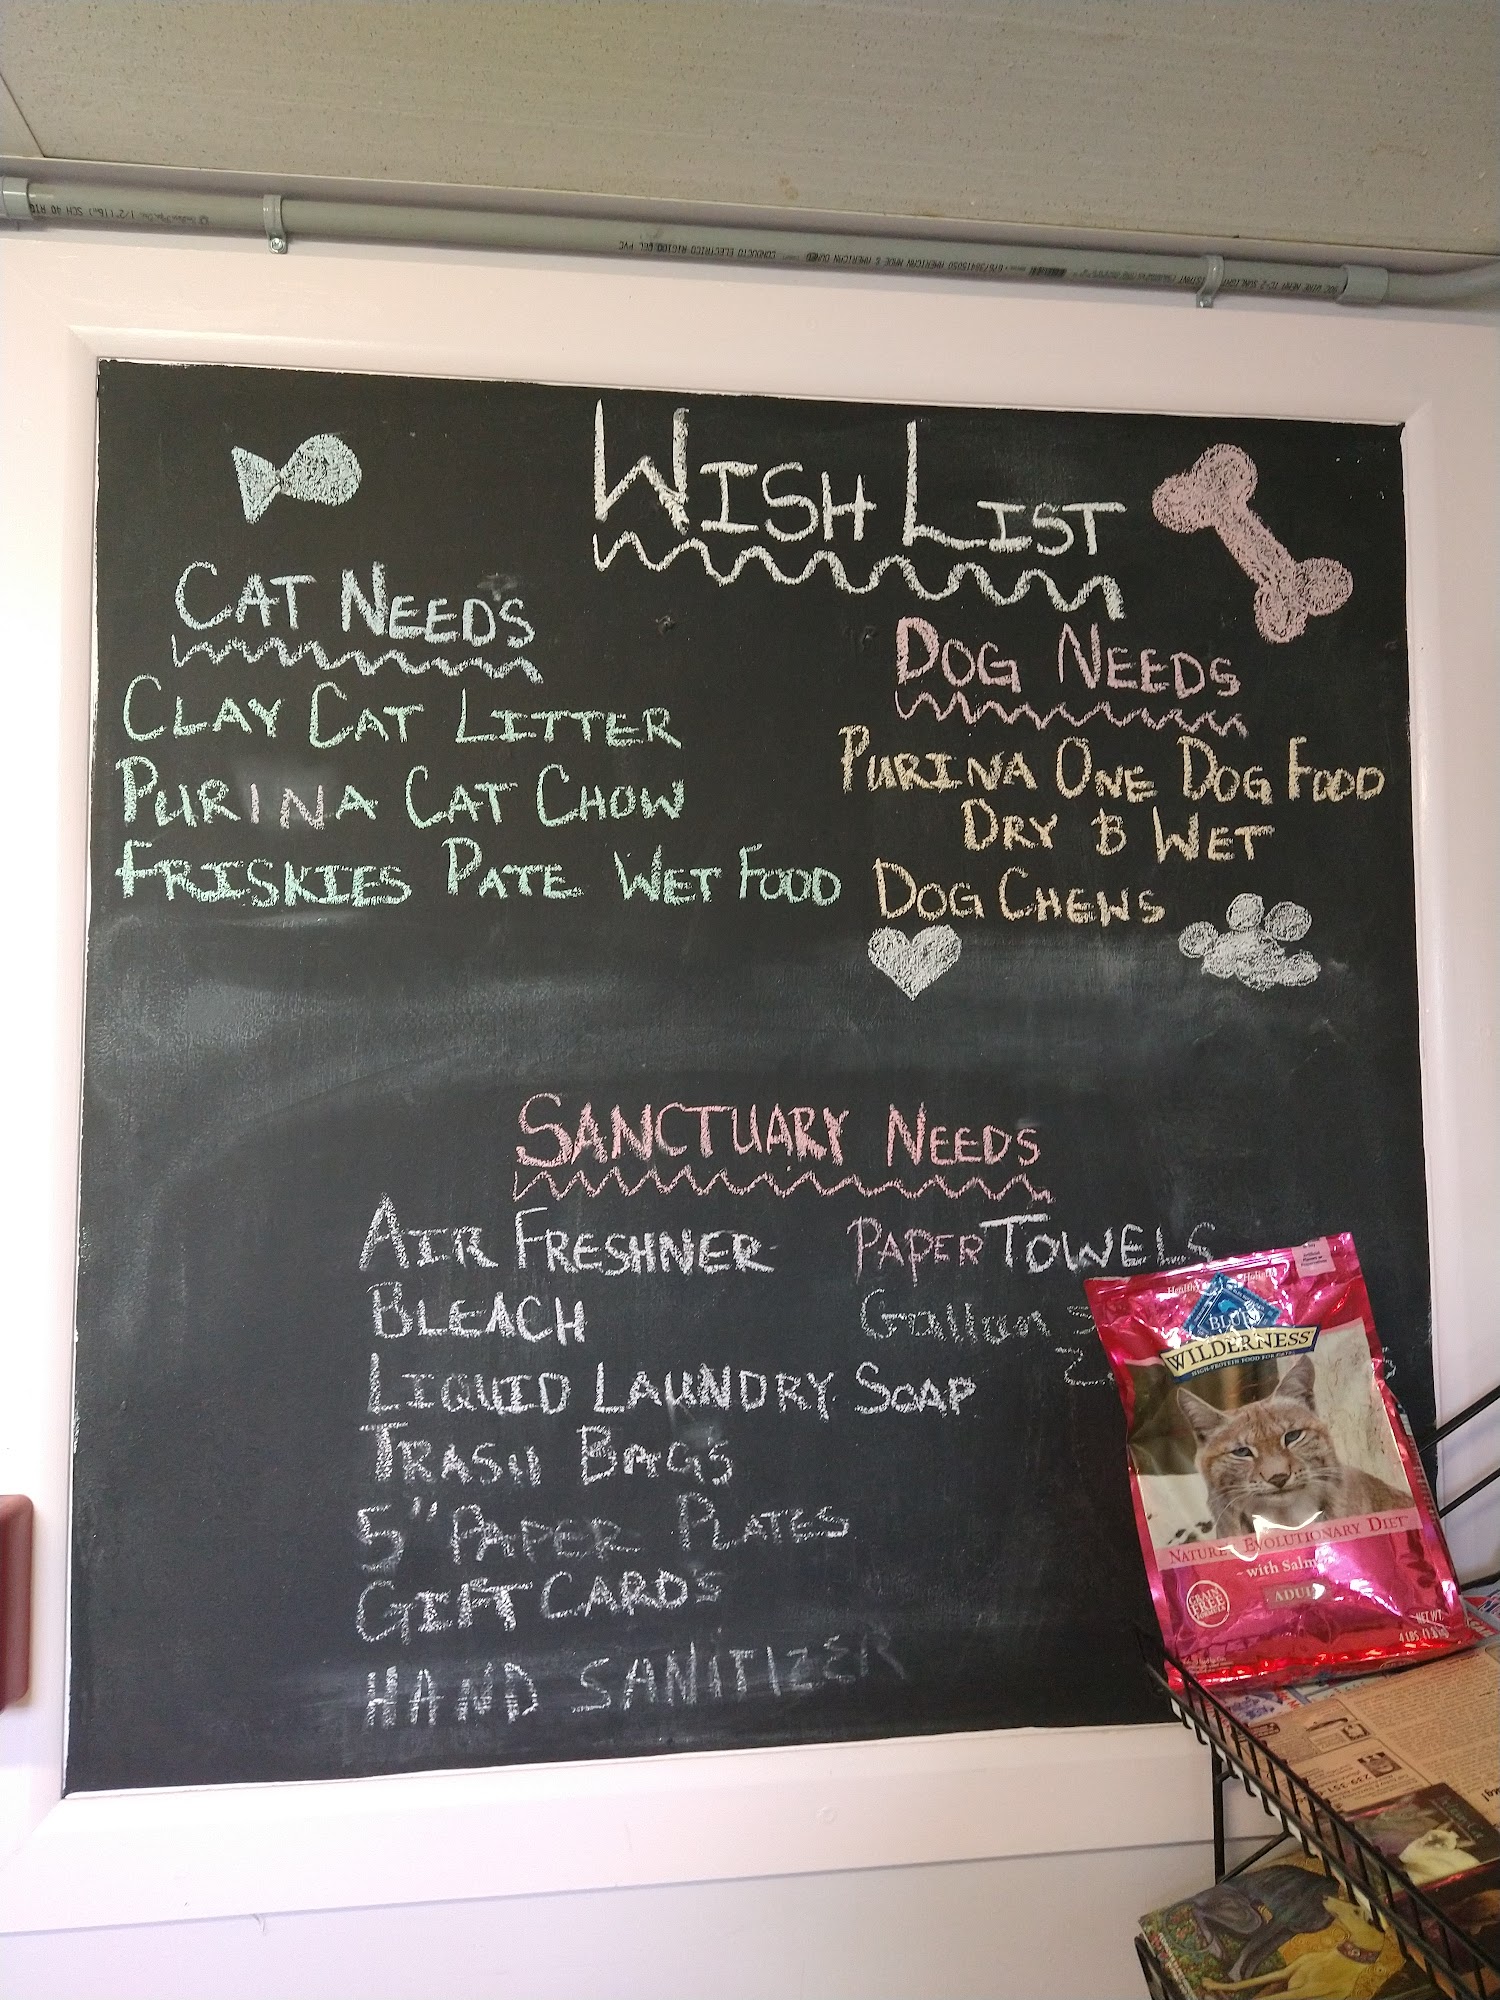 WISH LIST
CAT NEEDS
CLAY CAT LITTER
PURINA CAT CHOW
FRISKIES PATE WET FOOD
DOG NEEDS
PURINA ONE DOG FOOD
DRY & WET
DOG CHEWS
SANCTUARY NEEDS
AIR FRESHNER
BLEACH
LIQUID LAUNDRY SOAP
TRASH BAGS
5" PAPER PLATES
GIFT CARDS
HAND SANITIZER
PAPER TOWELS
Gallon
BLUE
WILDERNESS
HIGH-PROTEIN FOOD FOR CATS
NATURE'S EVOLUTIONARY DIET
with Salmon
ADULT
GRAIN
FREE
NET WT.
4 LBS
CONDUCTO ELECTRICO
PVC
SCH 40